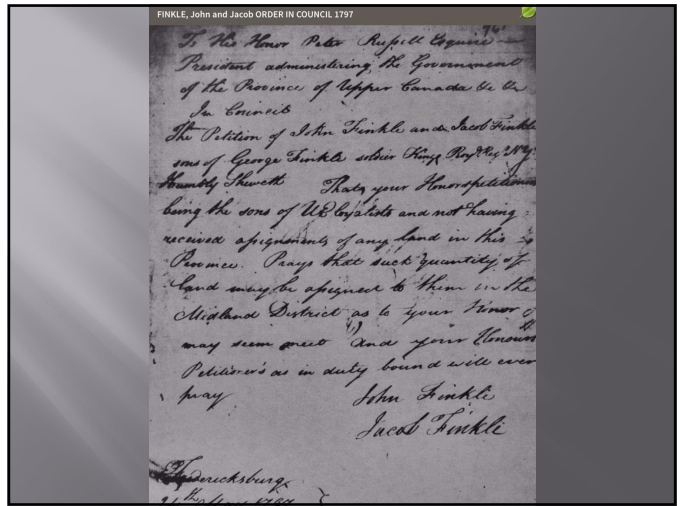 FINKLE, John and Jacob ORDER IN COUNCIL 1797
To His Honor Peter Russell Esquire
President administering the Government
of the Province of Upper Canada &c &c
In Council
The Petition of John Finkle and Jacob Finkle
sons of George Finkle soldier Kings Roy.l Reg.t N Y
Humbly Sheweth That your Honors petitioners
being the sons of UE loyalists and not having
received assignments of any land in this
Province. Prays that such quantity of
land may be assigned to them in the
Midland District as to your Honor
may seem meet And your Honours
Petitioner's as in duty bound will ever
pray
John Finkle
Jacob Finkle
Fredericksburg